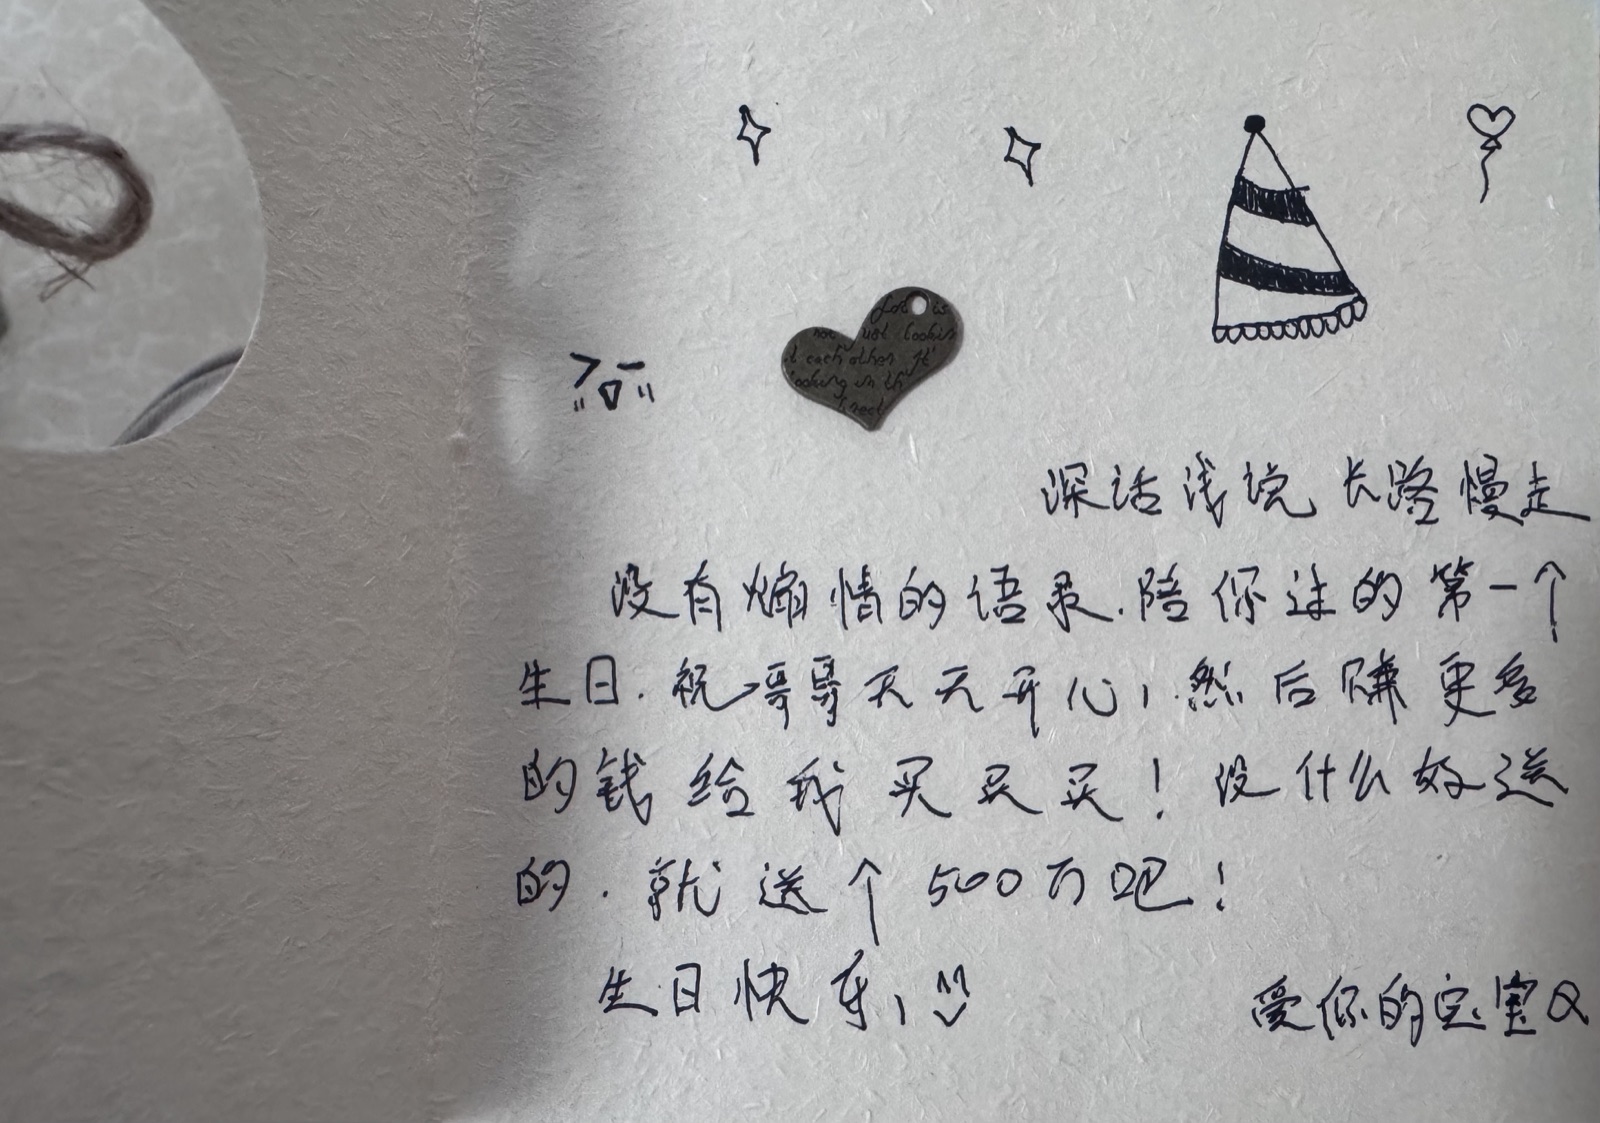 Love is
not just lookin
t each other It'
ooking in th
direct
深话浅说 长路慢走
没有煽情的语录.陪你过的第一个
生日.祝哥哥天天开心,然后赚更多
的钱给我买买买！没什么好送
的.就送个500万吧！
生日快乐,
爱你的宝宝